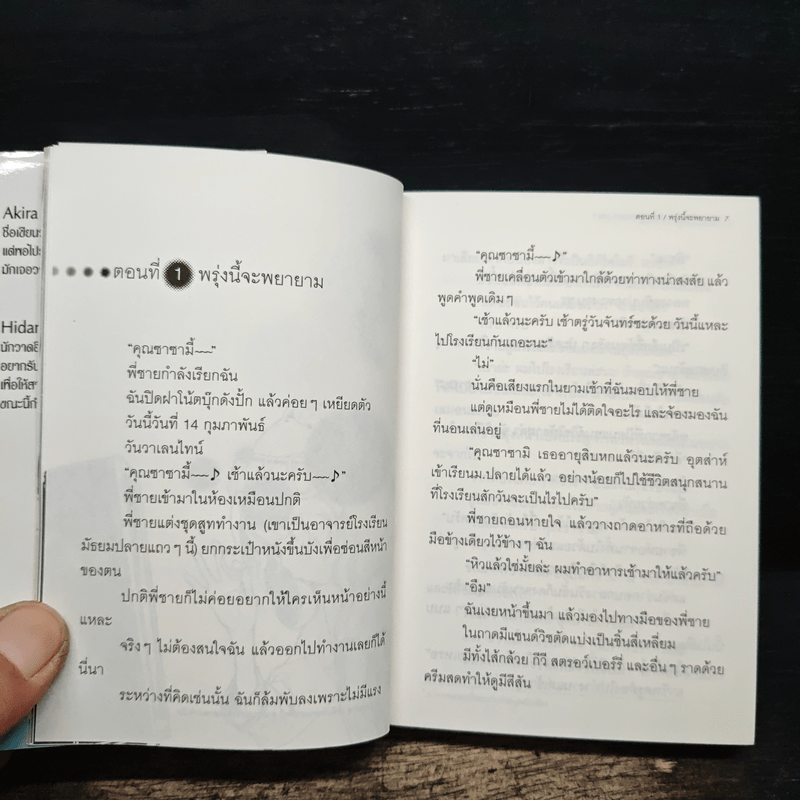 Akira
ชื่อเขียน
แต่พอไป
มักเจอว
Hidar
นักวาดอิ
อยากรับ
เพื่อให้ส
ขณะนี้ก
ตอนที่ 1 พรุ่งนี้จะพยายาม
“คุณซาซามี้~~”
พี่ชายกำลังเรียกฉัน
ฉันปิดฝาโน้ตบุ๊กดังปั้ก แล้วค่อยๆ เหยียดตัว
วันนี้วันที่ 14 กุมภาพันธ์
วันวาเลนไทน์
“คุณซาซามี้~~♪ เช้าแล้วนะครับ~~♪”
พี่ชายเข้ามาในห้องเหมือนปกติ
พี่ชายแต่งชุดสูททำงาน (เขาเป็นอาจารย์โรงเรียน
มัธยมปลายแถวๆ นี้) ยกกระเป๋าหนังขึ้นบังเพื่อซ่อนสีหน้า
ของตน
ปกติพี่ชายก็ไม่ค่อยอยากให้ใครเห็นหน้าอย่างนี้
แหละ
จริงๆ ไม่ต้องสนใจฉัน แล้วออกไปทำงานเลยก็ได้
นี่นา
ระหว่างที่คิดเช่นนั้น ฉันก็ล้มพับลงเพราะไม่มีแรง
ตอนที่ 1 / พรุ่งนี้จะพยายาม 7
“คุณซาซามี้~~♪”
พี่ชายเคลื่อนตัวเข้ามาใกล้ด้วยท่าทางน่าสงสัย แล้ว
พูดคำพูดเดิมๆ
“เช้าแล้วนะครับ เช้าตรู่วันจันทร์ซะด้วย วันนี้แหละ
ไปโรงเรียนกันเถอะนะ”
“ไม่”
นั่นคือเสียงแรกในยามเช้าที่ฉันมอบให้พี่ชาย
แต่ดูเหมือนพี่ชายไม่ได้ติดใจอะไร และจ้องมองฉัน
ที่นอนเล่นอยู่
“คุณซาซามิ เธออายุสิบหกแล้วนะครับ อุตส่าห์
เข้าเรียนม.ปลายได้แล้ว อย่างน้อยก็ไปใช้ชีวิตสนุกสนาน
ที่โรงเรียนสักวันจะเป็นไรไปครับ”
พี่ชายถอนหายใจ แล้ววางถาดอาหารที่ถือด้วย
มือข้างเดียวไว้ข้างๆ ฉัน
“หิวแล้วใช่มั้ยล่ะ ผมทำอาหารเช้ามาให้แล้วครับ”
“อืม”
ฉันเงยหน้าขึ้นมา แล้วมองไปทางมือของพี่ชาย
ในถาดมีแซนด์วิชตัดแบ่งเป็นชิ้นสี่เหลี่ยม
มีทั้งไส้กล้วย กีวี สตรอว์เบอร์รี่ และอื่นๆ ราดด้วย
ครีมสดทำให้ดูมีสีสัน